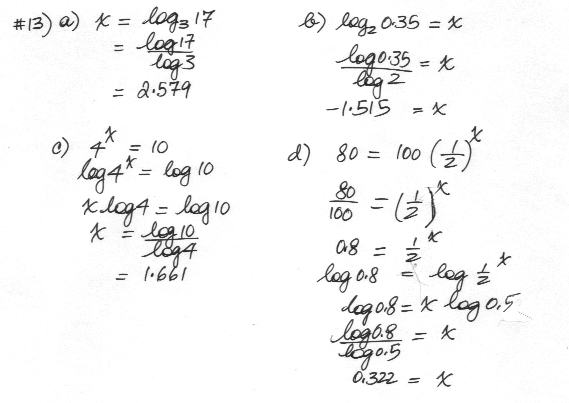 #13) a) x = log₃17
= log17/log3
= 2.579
b) log₂0.35 = x
log0.35/log2 = x
-1.515 = x
c) 4ˣ = 10
log4ˣ = log10
x log4 = log10
x = log10/log4
= 1.661
d) 80 = 100(1/2)ˣ
80/100 = (1/2)ˣ
0.8 = 1/2ˣ
log0.8 = log 1/2ˣ
log0.8 = x log0.5
log0.8/log0.5 = x
0.322 = x